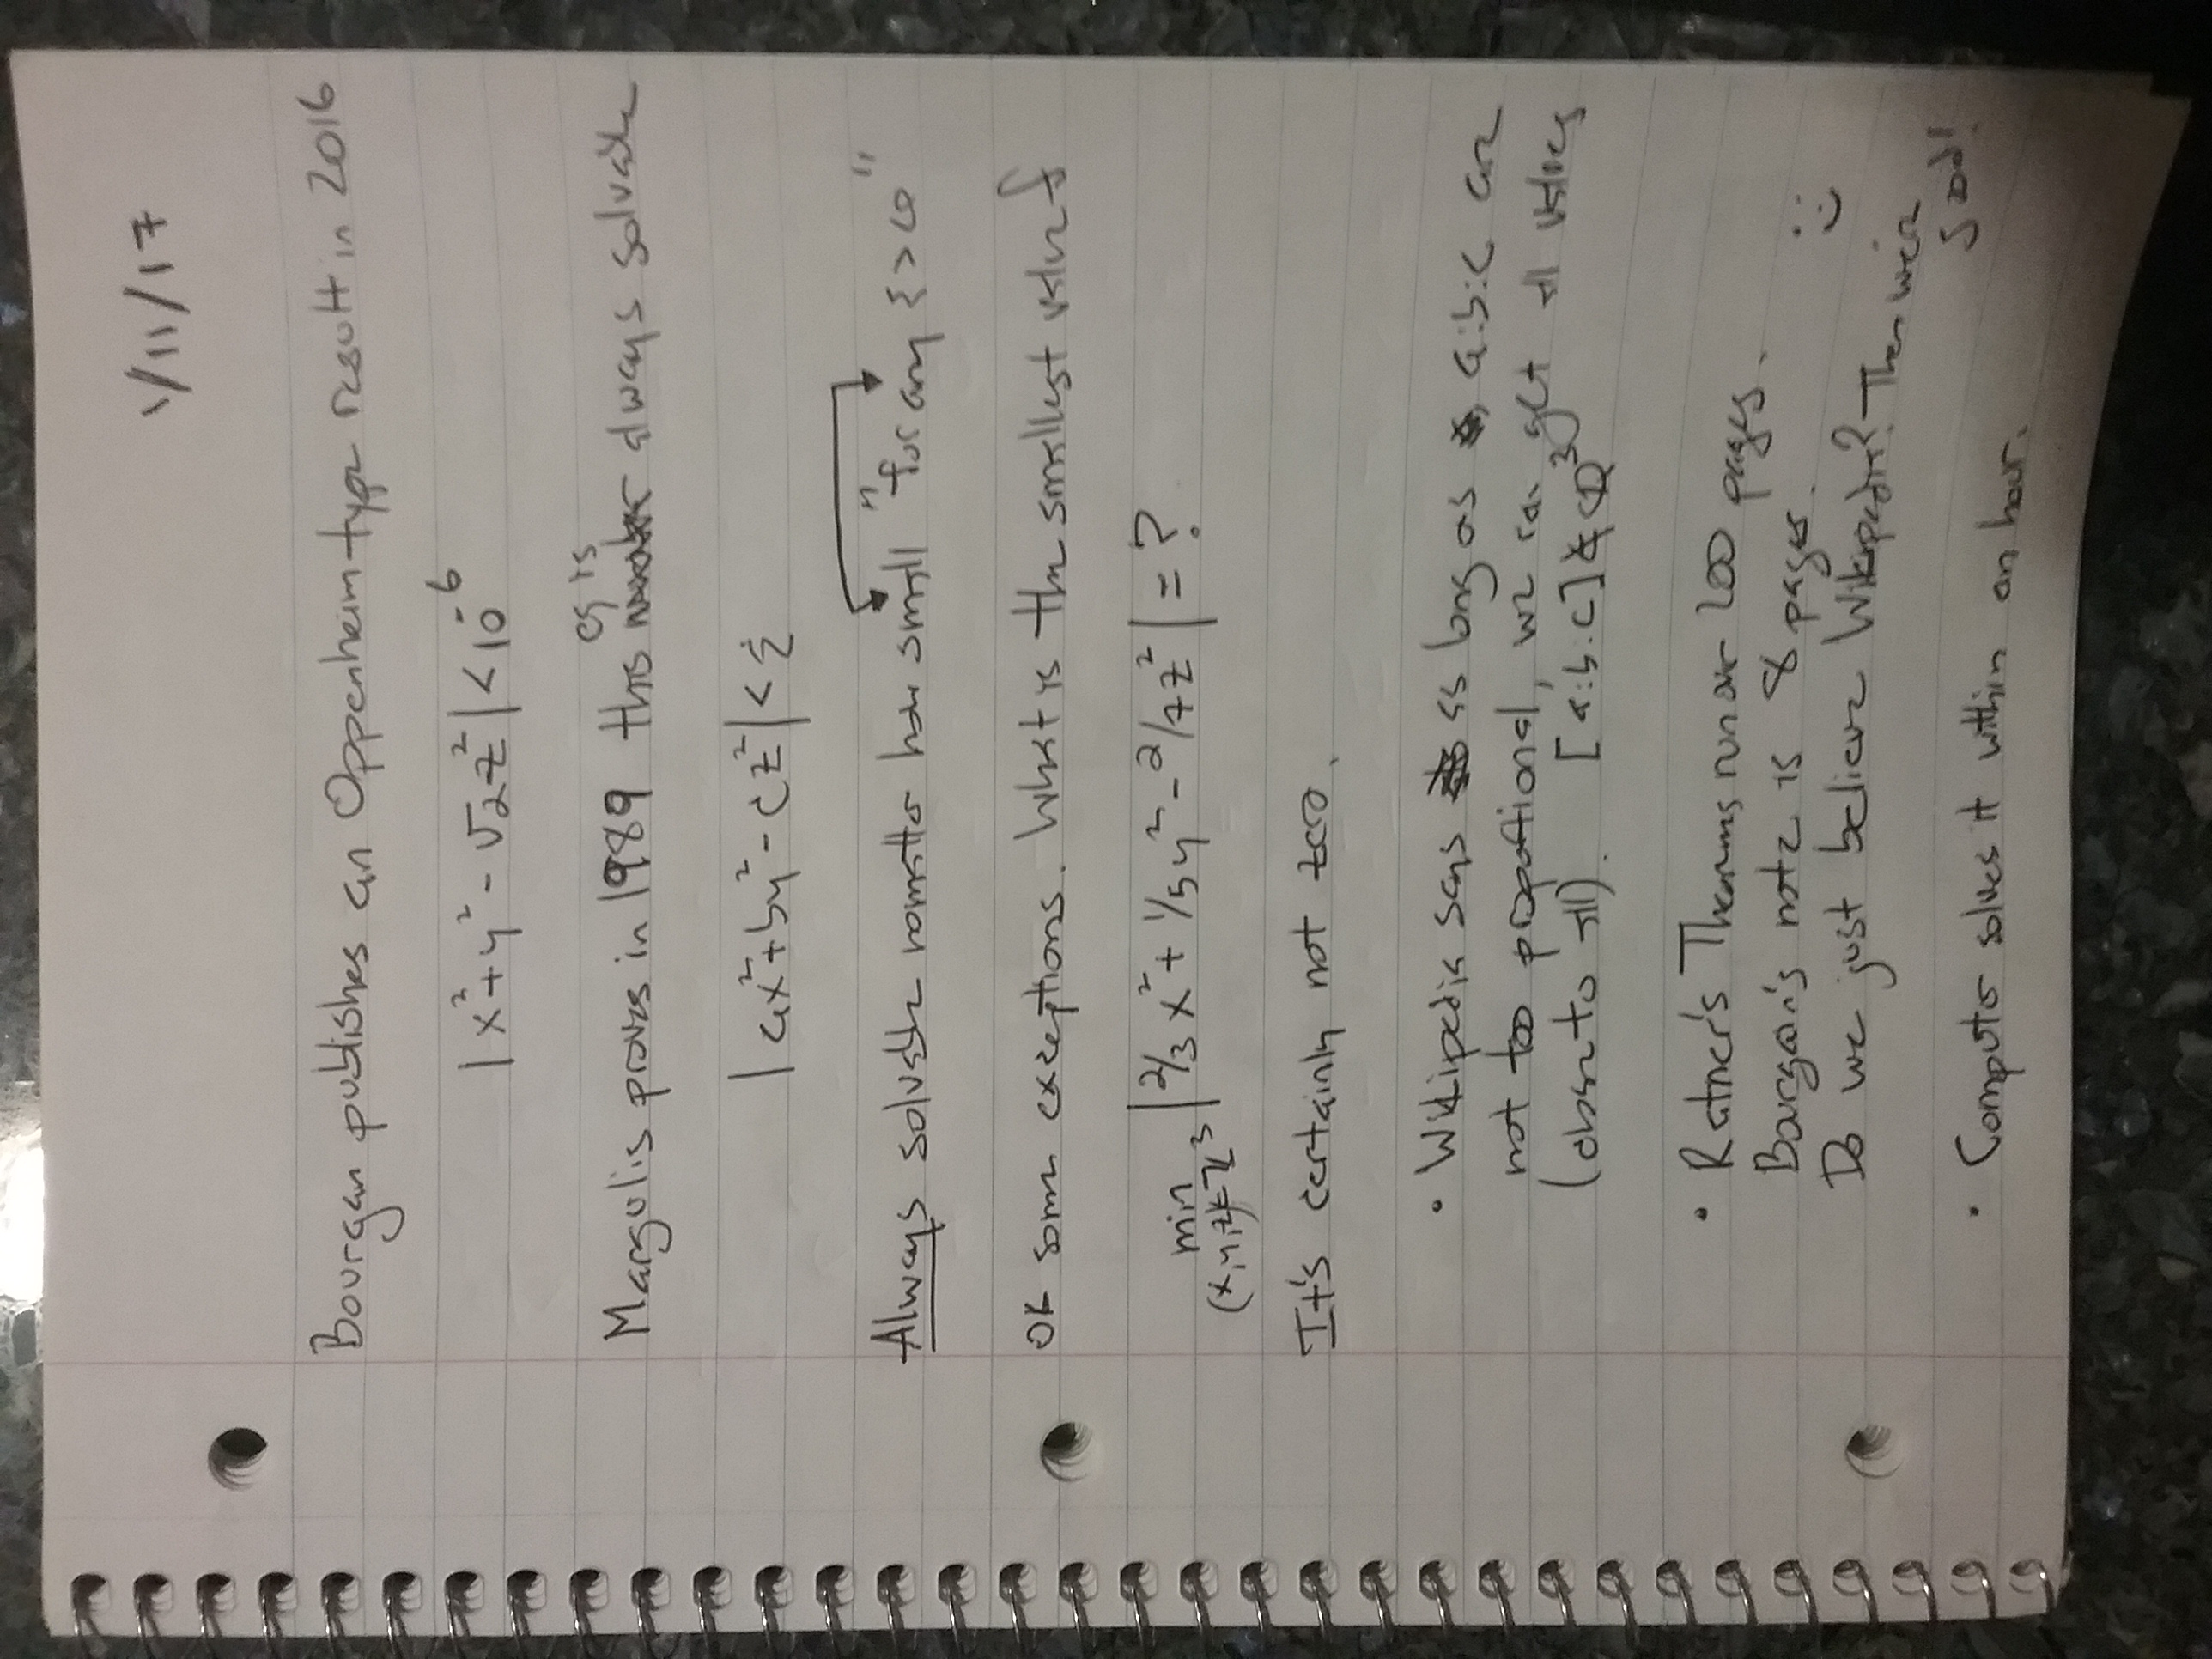 1/11/17
Bourgan publishes an Oppenheim type result in 2016
|x²+y²-√2z²|<10⁻⁶
eq is
Margulis proves in 1989 this always solvable
|ax²+by²-cz²|<ε
Always solvable no matter how small "for any ε>0"
OK some exceptions. What is the smallest value of
min |2/3x²+1/5y²-2/7z²|=?
(x,y,z)∈ℤ³
It's certainly not zero.
• Wikipedia says as long as a:b:c are
not too proportional, we can get all values
(close to all). [a:b:c]∉ℚ³
• Ratner's Theorems run over 200 pages.
Bourgain's note is 8 pages.
Do we just believe Wikipedia? Then we're
good!
• Computer solves it within an hour.